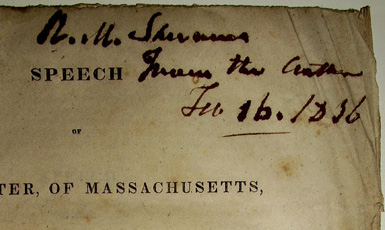 R. M. Sherman
SPEECH From the Author
Feb 16. 1836
OF
TER, OF MASSACHUSETTS,